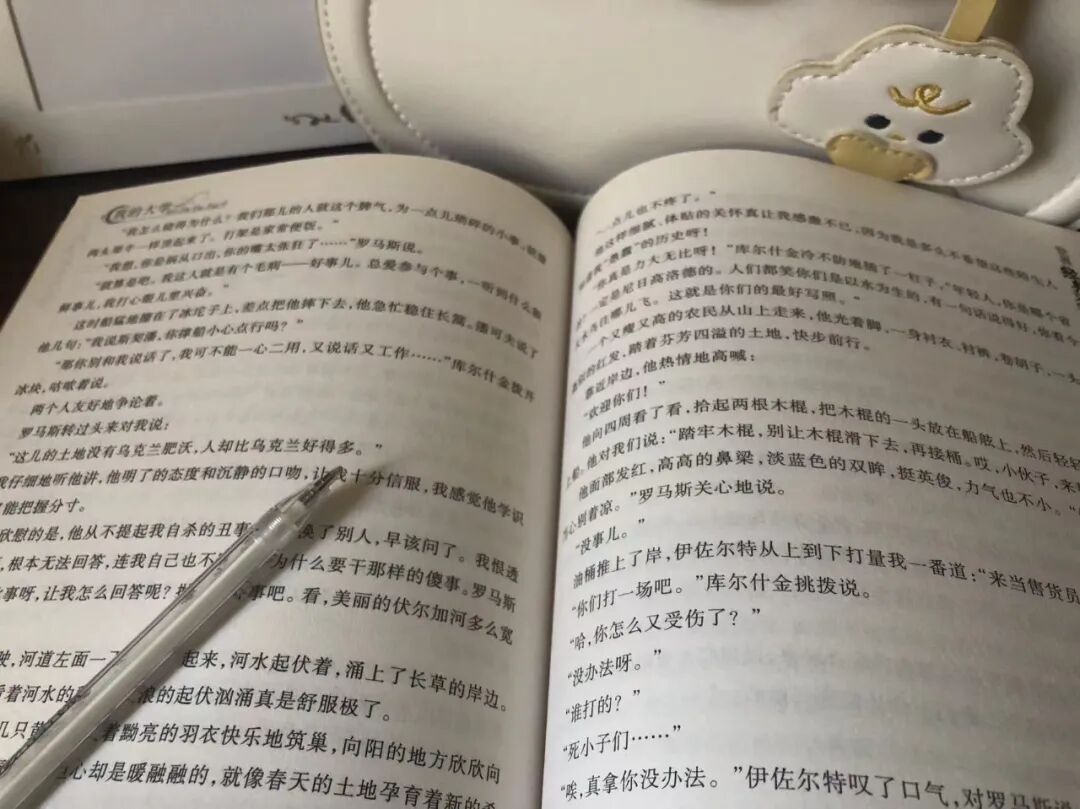 我的大学
“我怎么晓得为什么？我们那儿的人就这个脾气，为一点儿琐碎的小事，就能
两头犟牛一样顶起来了。打架是家常便饭。”
“我想，你是祸从口出，你的嘴太张狂了……”罗马斯说。
“就算是吧。我这人就是有个毛病——好事儿。总爱参与个事，一听到什么新
鲜事儿，我打心眼儿里兴奋。”
这时船猛地撞在了冰坨子上，差点把他摔下去，他急忙稳住长篙。潘可夫说了
他几句：“我说斯契潘，你撑船小心点行吗？”
“那你别和我说话了，我可不能一心二用，又说话又工作……”库尔什金拨开
冰块，咕哝着说。
两个人友好地争论着。
罗马斯转过头来对我说：
“这儿的土地没有乌克兰肥沃，人却比乌克兰好得多。”
我仔细地听他讲，他明了的态度和沉静的口吻，让我十分信服，我感觉他学识
能把握分寸。
欣慰的是，他从不提起我自杀的丑事 换了别人，早该问了。我恨透
，根本无法回答，连我自己也不 为什么要干那样的傻事。罗马斯
事呀，让我怎么回答呢？ 事吧。看，美丽的伏尔加河多么宽
驶，河道左面一 起来，河水起伏着，涌上了长草的岸边。
看着河水的 浪的起伏汹涌真是舒服极了。
几只 着黝亮的羽衣快乐地筑巢，向阳的地方欣欣向
心却是暖融融的，就像春天的土地孕育着新的
一点儿也不疼了。”
他这样细腻、体贴的关怀真让我感激不已，因为我是多么不希望这些陌生人
知道我“愚蠢”的历史呀！
“你真是力大无比呀！”库尔什金冷不防地插了一杠子，“年轻人，你是哪个省
一定是尼日高洛德的。人们都笑你们是以水为生的，有一句话说得好，你看今
从哪儿飞。这就是你们的最好写照。”
一个又瘦又高的农民从山上走来，他光着脚，一身衬衣、衬裤，卷胡子，一头
的红发，踏着芬芳四溢的土地，快步前行。
靠近岸边，他热情地高喊：
“欢迎你们！”
他向四周看了看，拾起两根木棍，把木棍的一头放在船舷上，然后轻轻
上船。他对我们说：“踏牢木棍，别让木棍滑下去，再接桶。哎，小伙子，来
他面部发红，高高的鼻梁，淡蓝色的双眸，挺英俊，力气也不小。”
心别着凉。”罗马斯关心地说。
“没事儿。”
油桶推上了岸，伊佐尔特从上到下打量我一番道：“来当售货员
“你们打一场吧。”库尔什金挑拨说。
“哈，你怎么又受伤了？”
“没办法呀。”
“谁打的？”
“死小子们……”
“唉，真拿你没办法。”伊佐尔特叹了口气，对罗马斯